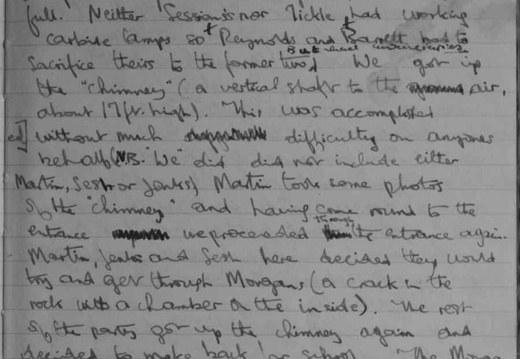 full. Neither Session is nor Tickle had working
carbide lamps so Reynolds and Barrett had to
sacrifice theirs to the former two. We got up
the "chimney" (a vertical shaft to the air,
about 17ft. high). This was accomplished
ed] without much difficulty on anyones
behalf (N.B. "We" did did not include either
Martin, Sesh or Jenks) Martin took some photos
of the "chimney" and having come round to the
entrance we proceeded through the entrance again.
Martin, Jenks and Sesh here decided they would
try and get through Morgans (a crack in the
rock with a chamber on the inside). The rest
of the party got up the chimney again and
decided to make back for school. The